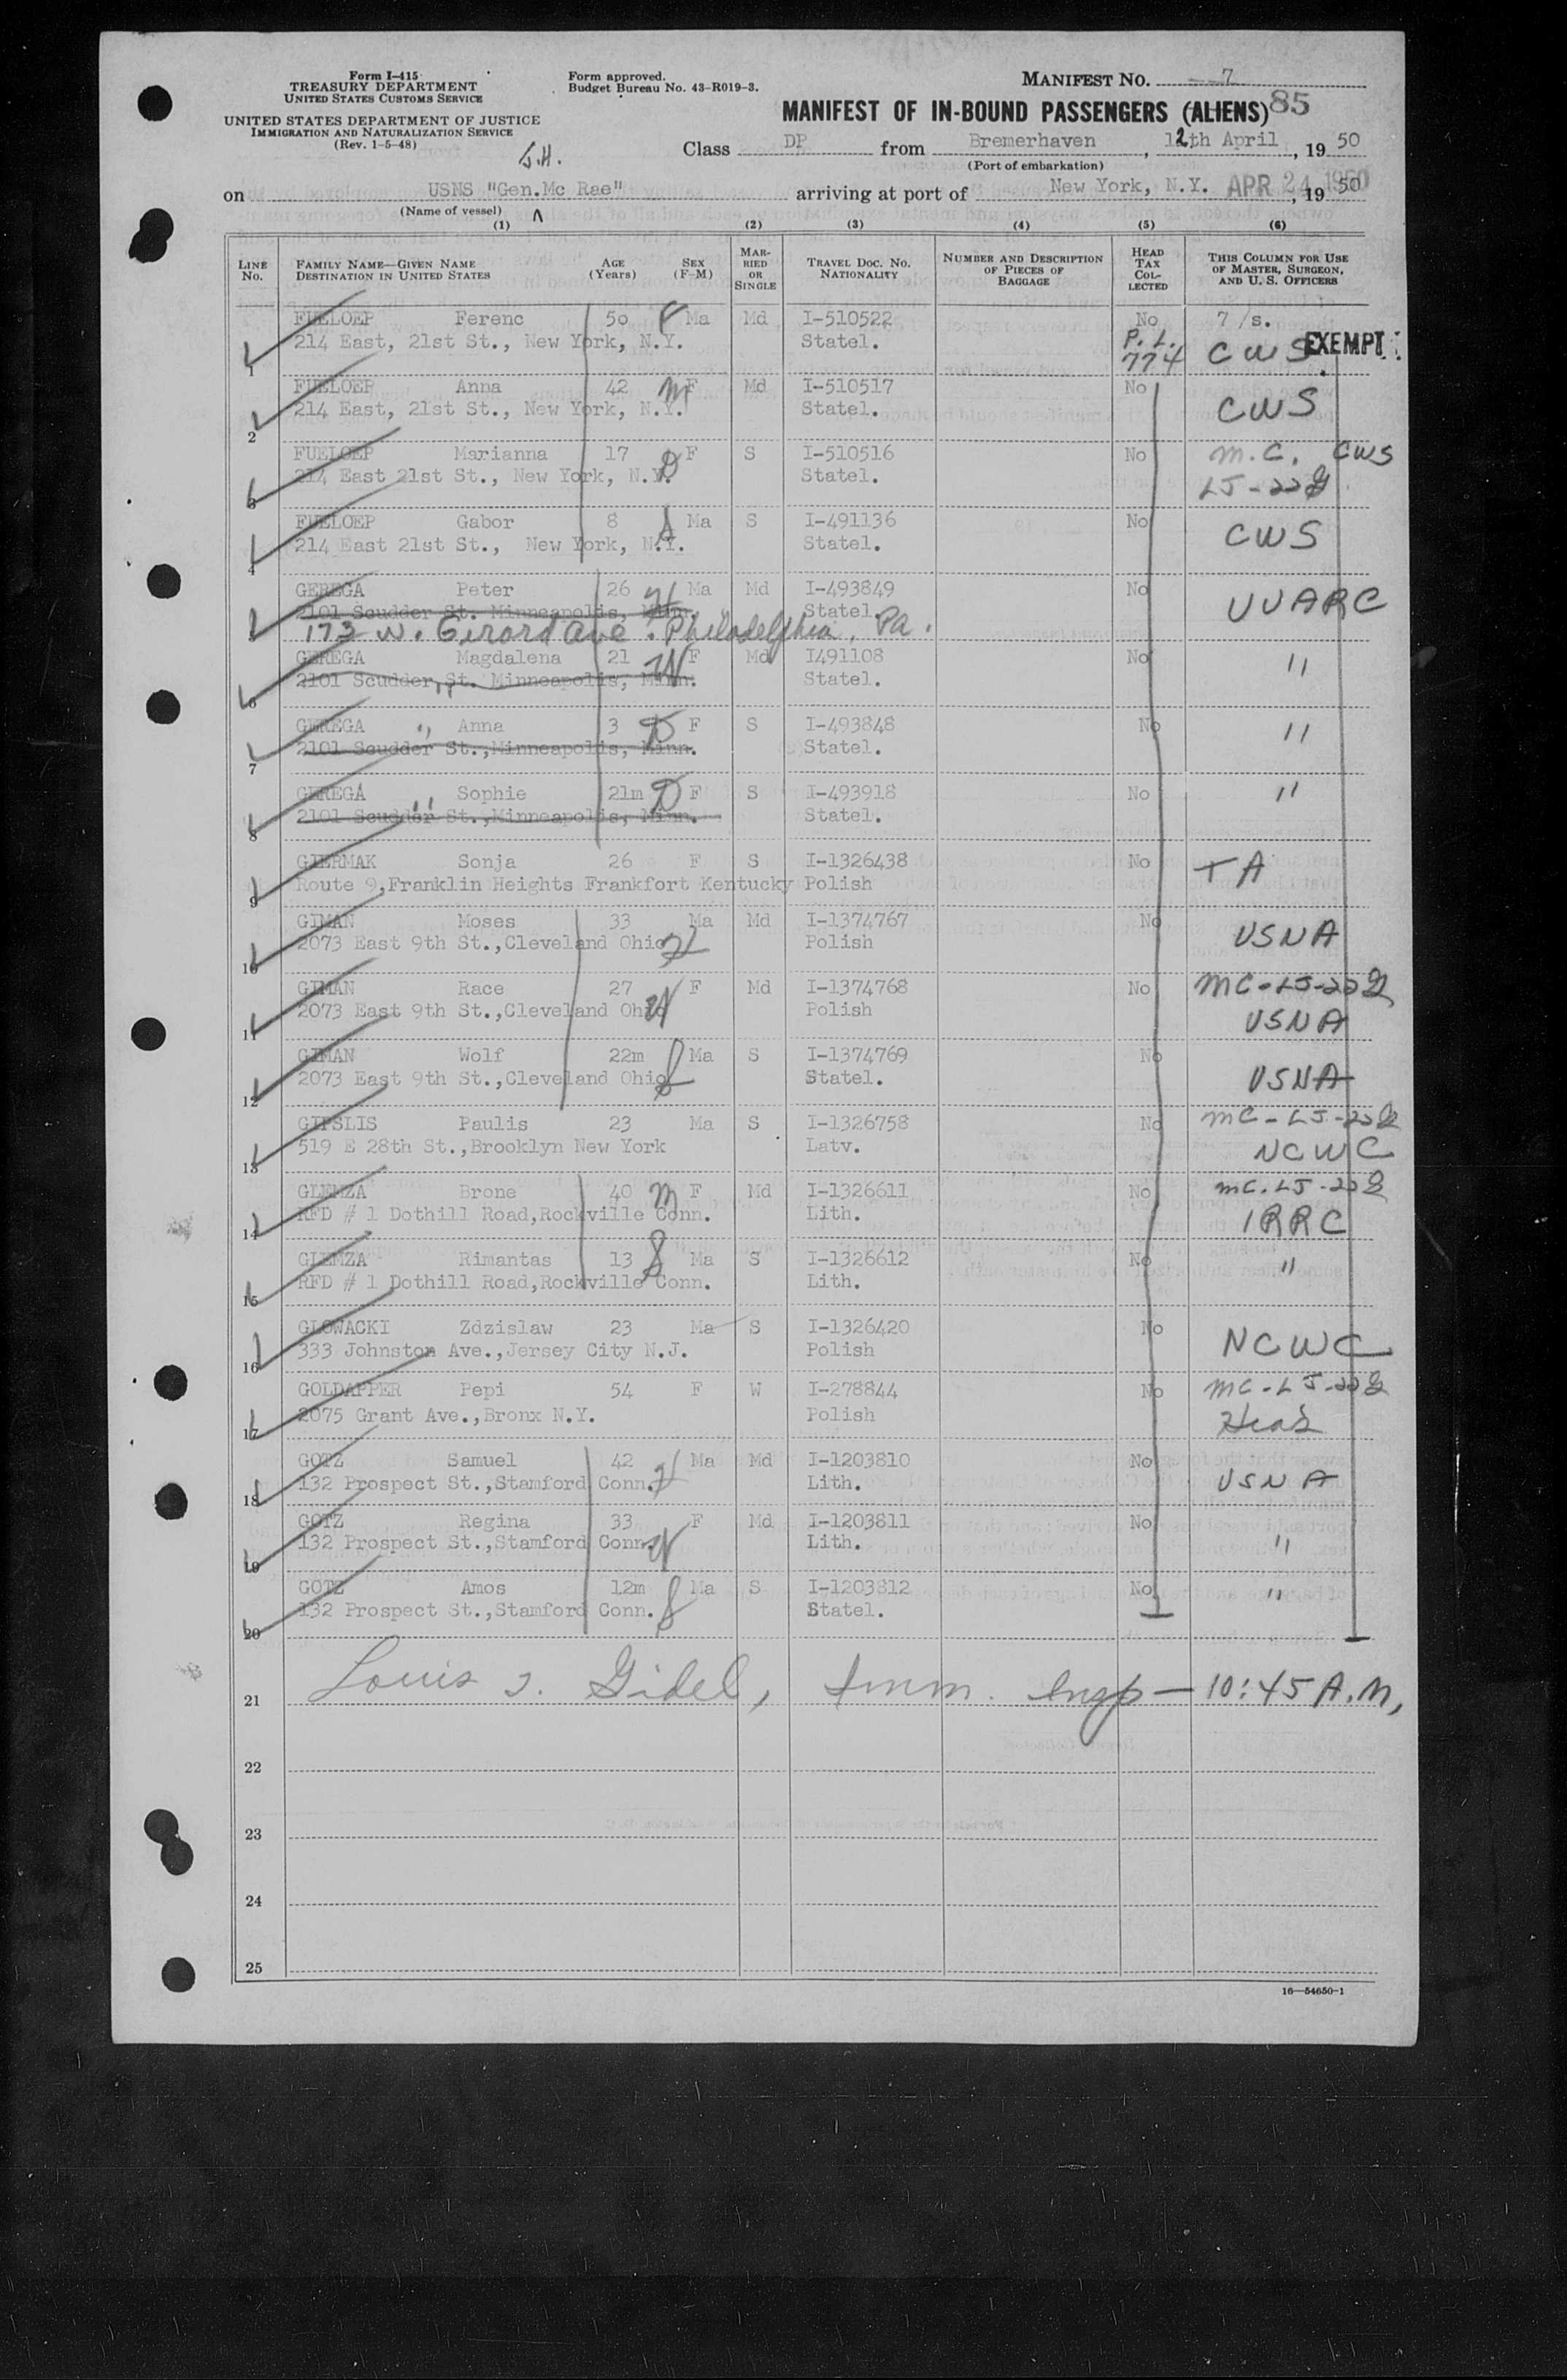 Form I-415
TREASURY DEPARTMENT
UNITED STATES CUSTOMS SERVICE
UNITED STATES DEPARTMENT OF JUSTICE
IMMIGRATION AND NATURALIZATION SERVICE
(Rev. 1-5-48)
Form approved.
Budget Bureau No. 43-R019-3.
MANIFEST NO. 7
MANIFEST OF IN-BOUND PASSENGERS (ALIENS) 85
Class DP from Bremerhaven, 12th April, 19 50
(Port of embarkation)
on USNS "Gen. Mc Rae" arriving at port of New York, N.Y. APR 24 1950, 19 50
(Name of vessel)
(1) (2) (3) (4) (5) (6)
LINE No. FAMILY NAME—GIVEN NAME DESTINATION IN UNITED STATES AGE (Years) SEX (F-M) MARRIED OR SINGLE TRAVEL DOC. NO. NATIONALITY NUMBER AND DESCRIPTION OF PIECES OF BAGGAGE HEAD TAX COLLECTED THIS COLUMN FOR USE OF MASTER, SURGEON, AND U. S. OFFICERS
FUELOEP Ferenc 50 F Ma Md I-510522 No 7/s.
1 214 East, 21st St., New York, N.Y. Statel. P.L. 774 CWS EXEMPT
FUELOEP Anna 42 M F Md I-510517 No
2 214 East, 21st St., New York, N.Y. Statel. CWS
FUELOEP Marianna 17 D F S I-510516 No M.C. CWS
3 214 East 21st St., New York, N.Y. Statel. LJ-22
FUELOEP Gabor 8 S Ma S I-491136 No
4 214 East 21st St., New York, N.Y. Statel. CWS
GEREGA Peter 26 H Ma Md I-493849 No
2101 Scudder St. Minneapolis, Minn. Statel. UUARC
173 W. Girard Ave. Philadelphia, Pa.
GEREGA Magdalena 21 W F Md I491108 No "
6 2101 Scudder St. Minneapolis, Minn. Statel.
GEREGA " Anna 3 D F S I-493848 No "
7 2101 Scudder St.,Minneapolis, Minn. Statel.
GEREGA " Sophie 21m D F S I-493918 No "
8 2101 Scudder St.,Minneapolis, Minn. Statel.
GJERMAK Sonja 26 F S I-1326438 No TA
9 Route 9,Franklin Heights Frankfort Kentucky Polish
GIMAN Moses 33 Ma Md I-1374767 No
10 2073 East 9th St.,Cleveland Ohio H Polish USNA
GIMAN Race 27 F Md I-1374768 No MC-LJ-22
11 2073 East 9th St.,Cleveland Ohio W Polish USNA
GIMAN Wolf 22m Ma S I-1374769 No
12 2073 East 9th St.,Cleveland Ohio S Statel. USNA
GIPSLIS Paulis 23 Ma S I-1326758 No MC-LJ-22
13 519 E 28th St.,Brooklyn New York Latv. NCWC
GLEMZA Brone 40 M F Md I-1326611 No MC.LJ-22
14 RFD # 1 Dothill Road,Rockville Conn. Lith. IRRC
GLEMZA Rimantas 13 S Ma S I-1326612 No "
15 RFD # 1 Dothill Road,Rockville Conn. Lith.
GLOWACKI Zdzislaw 23 Ma S I-1326420 No
16 333 Johnston Ave.,Jersey City N.J. Polish NCWC
GOLDAPPER Pepi 54 F W I-278844 No MC-LJ-22
17 2075 Grant Ave.,Bronx N.Y. Polish Hias
GOTZ Samuel 42 Ma Md I-1203810 No
18 132 Prospect St.,Stamford Conn. H Lith. USNA
GOTZ Regina 33 F Md I-1203811 No
19 132 Prospect St.,Stamford Conn. W Lith. "
GOTZ Amos 12m Ma S I-1203812 No "
20 132 Prospect St.,Stamford Conn. S Statel.
21 Louis J. Gidel, Imm. Insp — 10:45 A.M,
22
23
24
25
16—54650-1